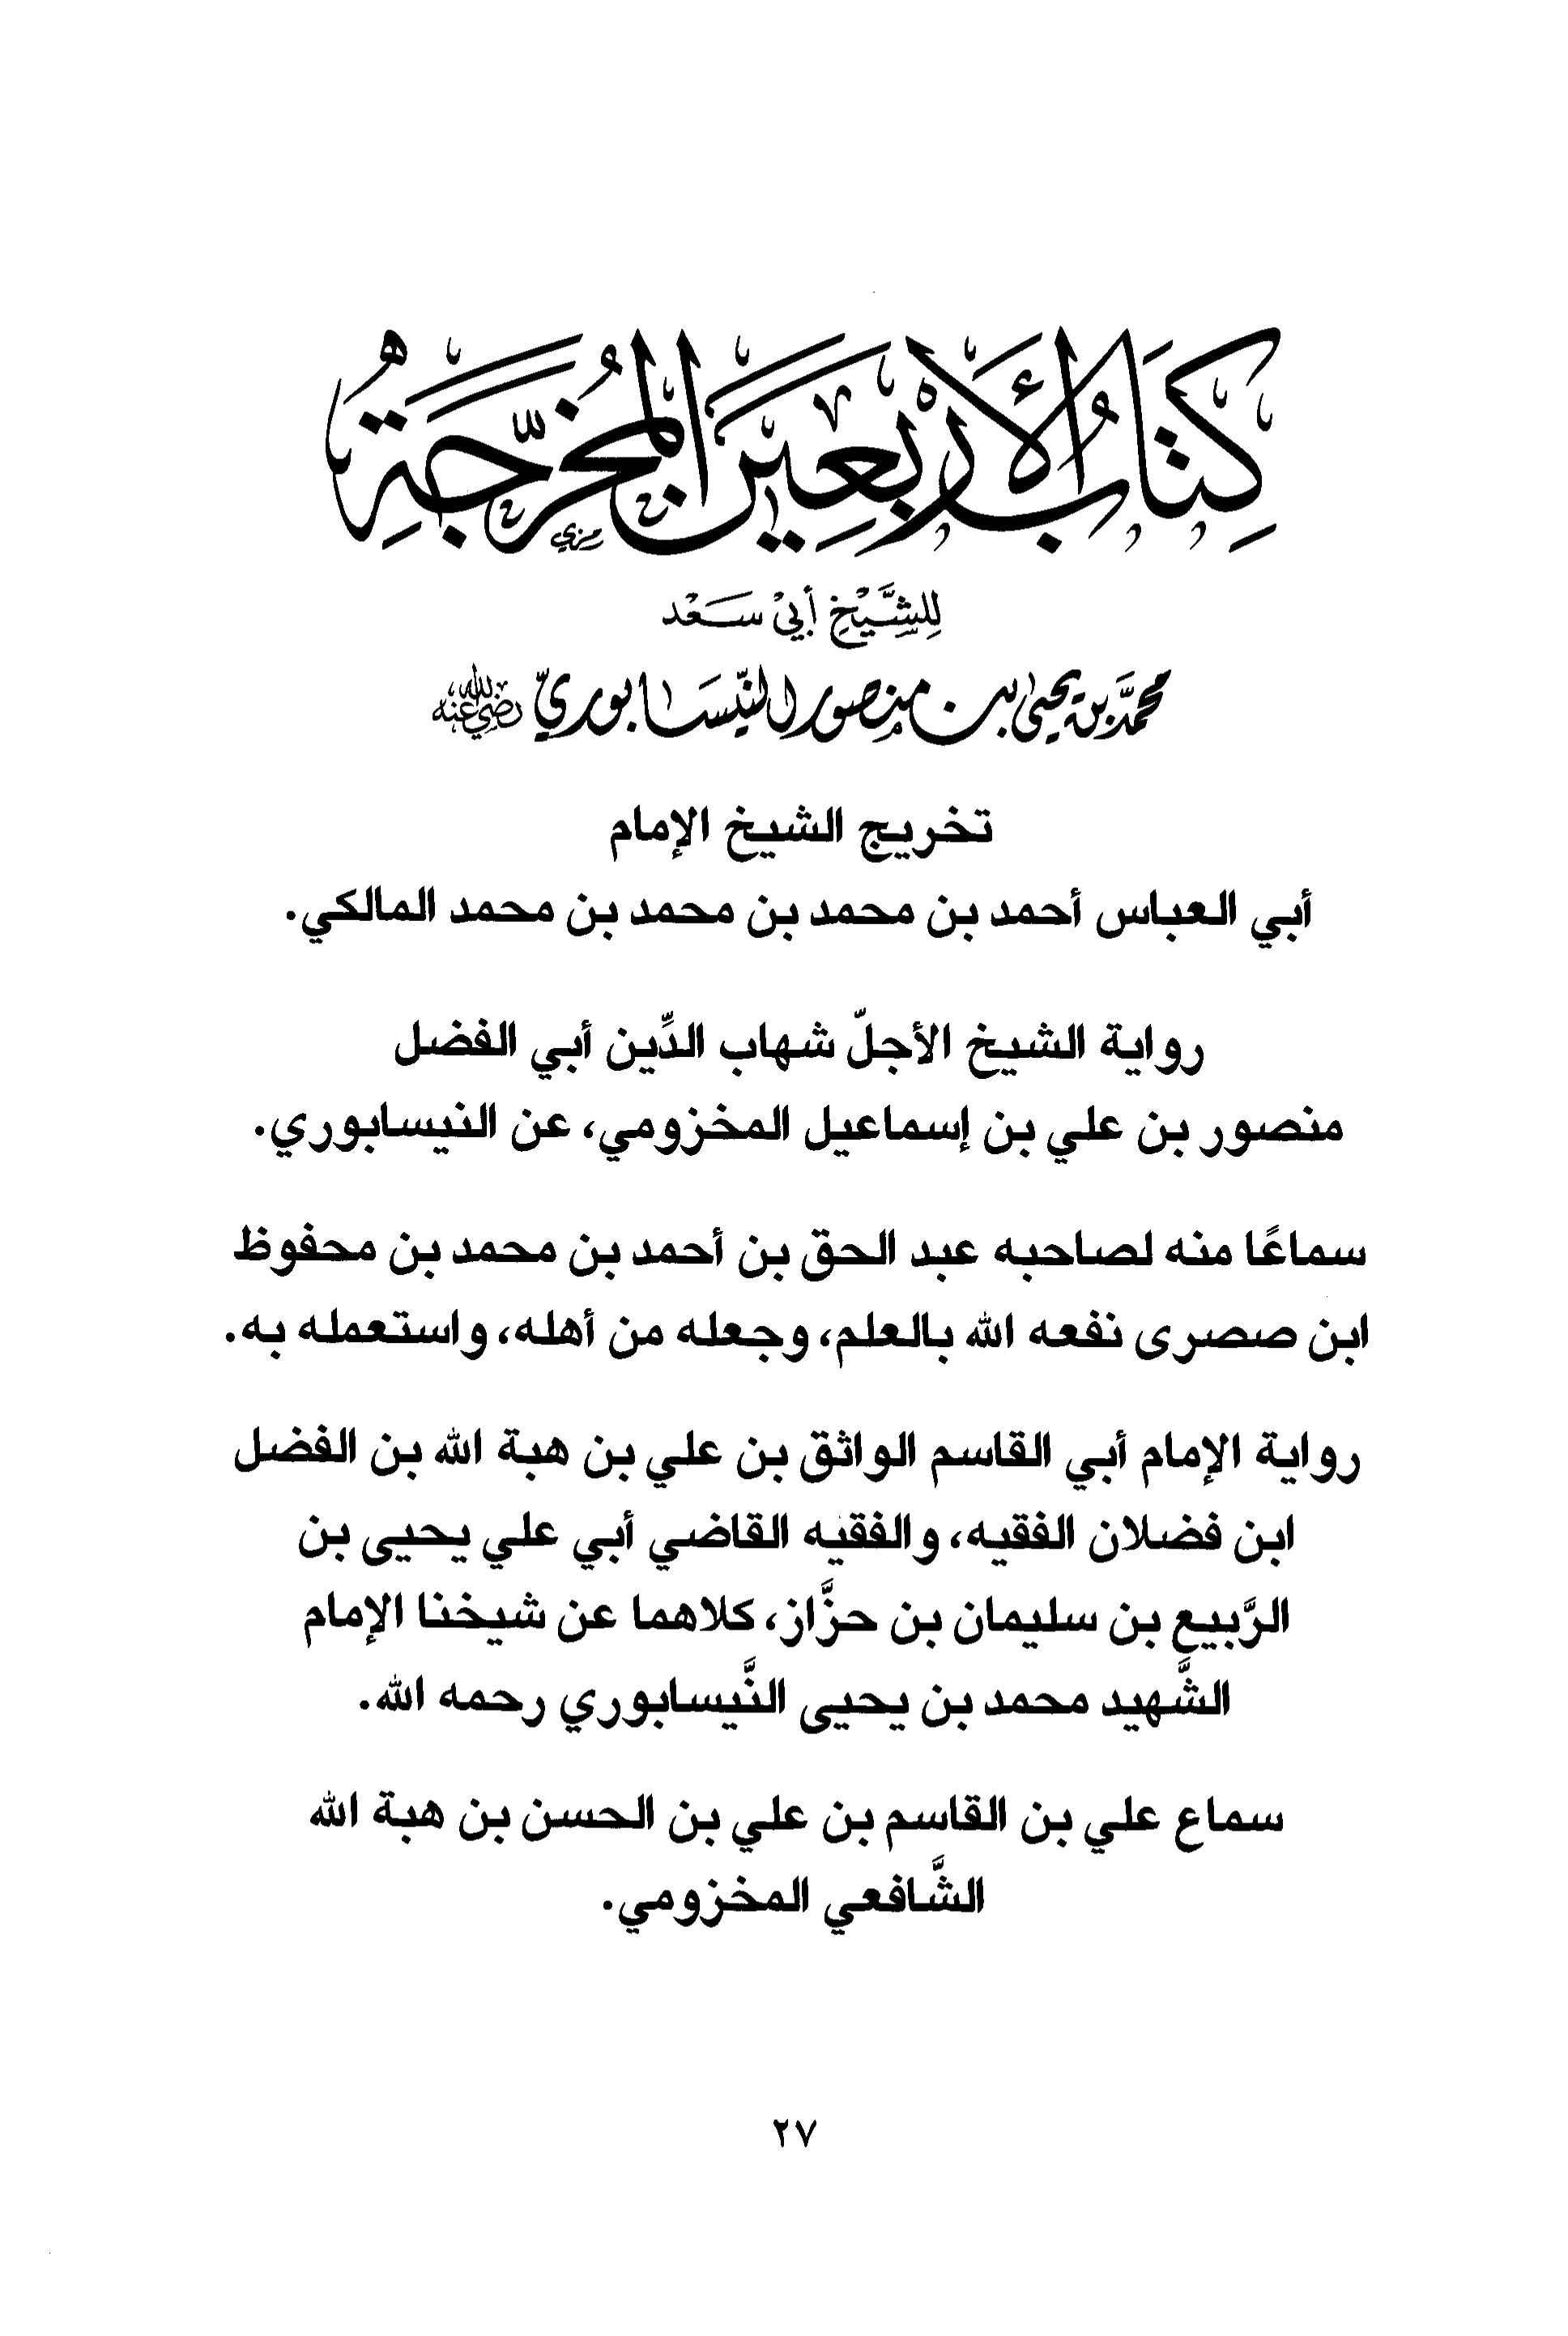 كِتَابُ الأَرْبَعِينَ المُخَرَّجَةِ
لِلشَّيْخِ أَبِيْ سَعْد
محمَّد بن يحيىٰ بن منصور النَّيْسَابوريّ رضي الله عنه
تخريج الشيخ الإمام
أبي العباس أحمد بن محمد بن محمد بن محمد المالكي.
رواية الشيخ الأجلّ شهاب الدِّين أبي الفضل
منصور بن علي بن إسماعيل المخزومي، عن النيسابوري.
سماعًا منه لصاحبه عبد الحق بن أحمد بن محمد بن محفوظ
ابن صصرى نفعه الله بالعلم، وجعله من أهله، واستعمله به.
رواية الإمام أبي القاسم الواثق بن علي بن هبة الله بن الفضل
ابن فضلان الفقيه، والفقيه القاضي أبي علي يحيى بن
الرَّبيع بن سليمان بن حزَّاز، كلاهما عن شيخنا الإمام
الشَّهيد محمد بن يحيى النَّيسابوري رحمه الله.
سماع علي بن القاسم بن علي بن الحسن بن هبة الله
الشَّافعي المخزومي.
٢٧